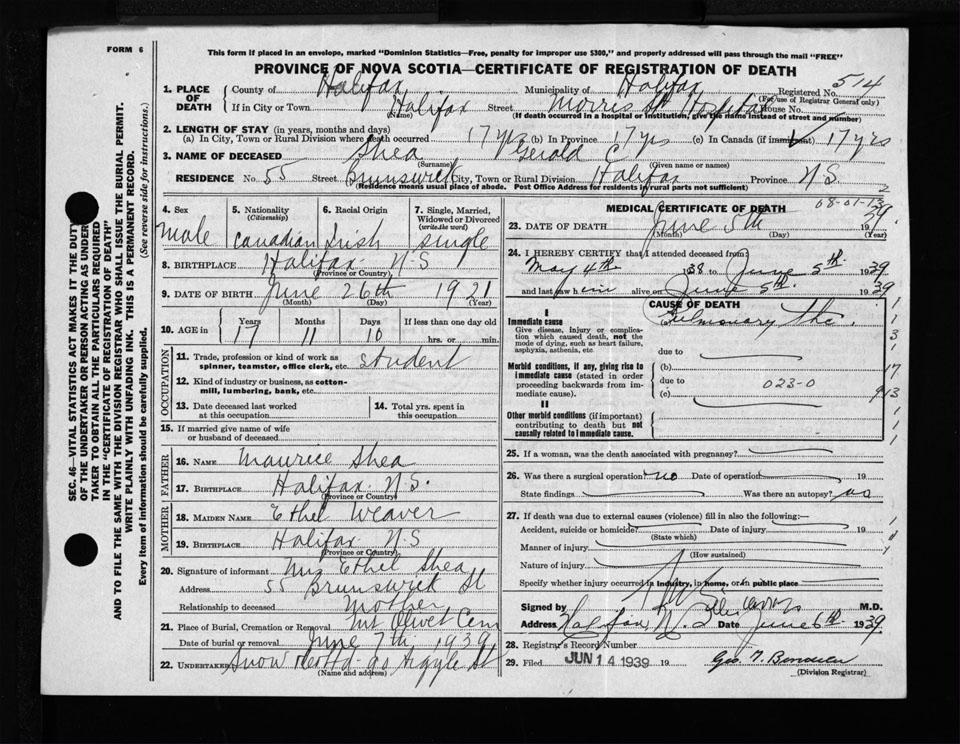 FORM 6
This form if placed in an envelope, marked "Dominion Statistics—Free, penalty for improper use $300," and properly addressed will pass through the mail "FREE"
PROVINCE OF NOVA SCOTIA—CERTIFICATE OF REGISTRATION OF DEATH
SEC. 46—VITAL STATISTICS ACT MAKES IT THE DUTY
OF THE UNDERTAKER OR PERSON ACTING AS UNDER-
TAKER TO OBTAIN ALL THE PARTICULARS REQUIRED
IN THE "CERTIFICATE OF REGISTRATION OF DEATH"
AND TO FILE THE SAME WITH THE DIVISION REGISTRAR WHO SHALL ISSUE THE BURIAL PERMIT.
WRITE PLAINLY WITH UNFADING INK. THIS IS A PERMANENT RECORD.
Every item of information should be carefully supplied. (See reverse side for instructions.)
1. PLACE OF DEATH County of Halifax Municipality of Halifax Registered No. 514
(For use of Registrar General only)
If in City or Town Halifax Street Morris St Hospital House No.
(Name) (If death occurred in a hospital or institution, give the name instead of street and number)
2. LENGTH OF STAY (in years, months and days)
(a) In City, Town or Rural Division where death occurred 17 yrs (b) In Province 17 yrs (c) In Canada (if immigrant) 17 yrs
3. NAME OF DECEASED Shea Gerald C
(Surname) (Given name or names)
RESIDENCE No. 55 Street Brunswick City, Town or Rural Division Halifax Province N.S. 2
(Residence means usual place of abode. Post Office Address for residents in rural parts not sufficient)
4. Sex Male
5. Nationality (Citizenship) Canadian
6. Racial Origin Irish
7. Single, Married, Widowed or Divorced (write the word) Single
8. BIRTHPLACE Halifax N-S
(Province or Country)
9. DATE OF BIRTH June 26th 1921
(Month) (Day) (Year)
10. AGE in Years 17 Months 11 Days 10 If less than one day old hrs. or min.
OCCUPATION
11. Trade, profession or kind of work as spinner, teamster, office clerk, etc. Student
12. Kind of industry or business, as cotton-mill, lumbering, bank, etc.
13. Date deceased last worked at this occupation
14. Total yrs. spent in this occupation
15. If married give name of wife or husband of deceased
FATHER
16. NAME Maurice Shea
17. BIRTHPLACE Halifax N.S.
(Province or Country)
MOTHER
18. MAIDEN NAME Ethel Weaver
19. BIRTHPLACE Halifax N.S
(Province or Country)
20. Signature of informant Mrs Ethel Shea
Address 55 Brunswick St
Relationship to deceased Mother
21. Place of Burial, Cremation or Removal Mt Olivet Cem
Date of burial or removal June 7th 1939
22. UNDERTAKER Snow 90 Argyle St
(Name and address)
MEDICAL CERTIFICATE OF DEATH
68-01-13
23. DATE OF DEATH June 5th 1939
(Month) (Day) (Year)
24. I HEREBY CERTIFY that I attended deceased from:
May 4th 1938 to June 5th 1939
and last saw him alive on June 5th 1939
CAUSE OF DEATH
I
Immediate cause Pulmonary tbc.
Give disease, injury or complication which caused death, not the mode of dying, such as heart failure, asphyxia, asthenia, etc.
due to
Morbid conditions, if any, giving rise to immediate cause (stated in order proceeding backwards from immediate cause).
(b)
due to 023-0
(c)
17
913
II
Other morbid conditions (if important) contributing to death but not causally related to immediate cause.
25. If a woman, was the death associated with pregnancy?
26. Was there a surgical operation? no Date of operation 19
State findings Was there an autopsy?
27. If death was due to external causes (violence) fill in also the following:—
Accident, suicide or homicide? Date of injury 19
(State which)
Manner of injury
(How sustained)
Nature of injury
Specify whether injury occurred in industry, in home, or in public place
Signed by M.D.
Address Halifax, N.S. Date June 6th 1939
28. Registrar's Record Number
29. Filed JUN 14 1939 19 Geo.
(Division Registrar)